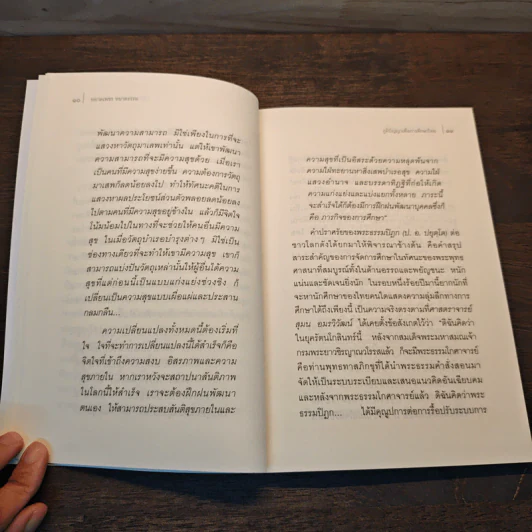 พัฒนาความสามารถ มิใช่เพียงในการที่จะ
แสวงหาวัตถุมาเสพเท่านั้น แต่ให้เขาพัฒนา
ความสามารถที่จะมีความสุขด้วย เมื่อเรา
เป็นคนที่มีความสุขง่ายขึ้น ความต้องการวัตถุ
มาเสพก็ลดน้อยลงไป ทำให้ทัศนะคติในการ
แสวงหาผลประโยชน์ส่วนตัวพลอยลดน้อยลง
ไปตามคนที่มีความสุขอยู่ข้างใน แล้วก็มีจิตใจ
โน้มน้อมไปในทางที่จะช่วยให้คนอื่นมีความ
สุข ในเมื่อวัตถุบำเรอบำรุงต่างๆ มิใช่เป็น
ช่องทางเดียวที่จะทำให้เขามีความสุข เขาก็
สามารถแบ่งปันวัตถุเหล่านั้นให้ผู้อื่นได้ความ
สุขที่แต่ก่อนนี้เป็นแบบแก่งแย่งช่วงชิง ก็
เปลี่ยนเป็นความสุขแบบเผื่อแผ่และประสาน
กลมกลืน...
ความเปลี่ยนแปลงทั้งหมดนี้ต้องเริ่มที่
ใจ ใจที่จะทำการเปลี่ยนแปลงนี้ได้สำเร็จก็คือ
จิตใจที่เข้าถึงความสงบ อิสรภาพและความ
สุขภายใน หากเราหวังจะสถาปนาสันติภาพ
ในโลกนี้ให้สำเร็จ เราจะต้องฝึกฝนพัฒนา
ตนเอง ให้สามารถประสบสันติสุขภายในและ
ความสุขที่เป็นอิสระด้วยความหลุดพ้นจาก
ความใฝ่ทะยานหาสิ่งเสพบำเรอสุข ความใฝ่
แสวงอำนาจ และบรรดาทิฏฐิที่ก่อให้เกิด
ความแก่งแย่งและแบ่งแยกทั้งหลาย ภาระนี้
จะสำเร็จได้ก็ต้องมีการฝึกฝนพัฒนาบุคคลซึ่งก็
คือ ภารกิจของการศึกษา"
คำปราศรัยของพระธรรมปิฎก (ป. อ. ปยุตฺโต) ต่อ
ชาวโลกดังได้ยกมาให้พิจารณาข้างต้น คือคำสรุป
สาระสำคัญของการจัดการศึกษาในทัศนะของพระพุทธ
ศาสนาที่สมบูรณ์ทั้งในด้านอรรถและพยัญชนะ หนัก
แน่นและชัดเจนยิ่งนัก ในรอบหนึ่งร้อยปีมานี้ยากนักที่
จะหานักศึกษาของไทยคนใดแสดงความลุ่มลึกทางการ
ศึกษาได้ถึงเพียงนี้ เป็นความจริงตรงตามที่ศาสตราจารย์
สุมน อมรวิวัฒน์ ได้เคยตั้งข้อสังเกตไว้ว่า "ดิฉันคิดว่า
ในยุครัตนโกสินทร์นี้ หลังจากสมเด็จพระมหาสมณเจ้า
กรมพระยาวชิรญาณวโรรสแล้ว ก็จะมีพระธรรมโกศาจารย์
คือท่านพุทธทาสภิกขุที่ได้นำพระธรรมคำสั่งสอนมา
จัดให้เป็นระบบระเบียบและเสนอแนวคิดอันเฉียบคม
และหลังจากพระธรรมโกศาจารย์แล้ว ดิฉันคิดว่าพระ
ธรรมปิฎก... ได้มีคุณูปการต่อการรื้อปรับระบบการ